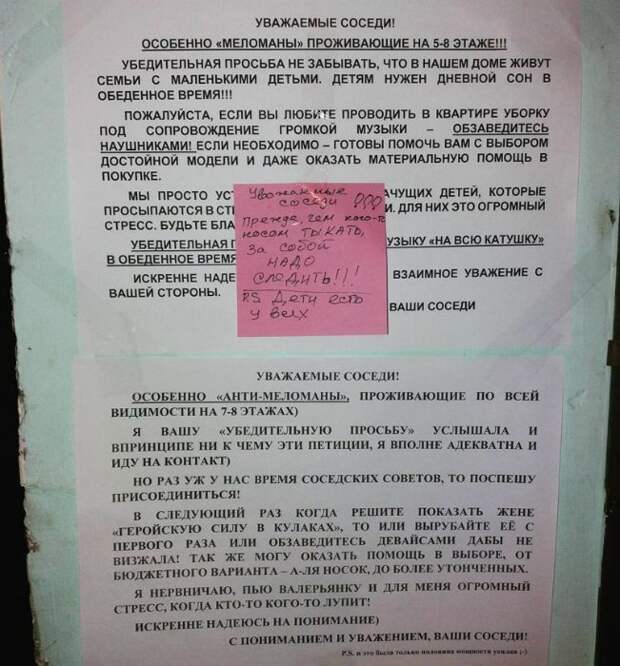 УВАЖАЕМЫЕ СОСЕДИ!
ОСОБЕННО «МЕЛОМАНЫ» ПРОЖИВАЮЩИЕ НА 5-8 ЭТАЖЕ!!!
УБЕДИТЕЛЬНАЯ ПРОСЬБА НЕ ЗАБЫВАТЬ, ЧТО В НАШЕМ ДОМЕ ЖИВУТ
СЕМЬИ С МАЛЕНЬКИМИ ДЕТЬМИ. ДЕТЯМ НУЖЕН ДНЕВНОЙ СОН В
ОБЕДЕННОЕ ВРЕМЯ!!!
ПОЖАЛУЙСТА, ЕСЛИ ВЫ ЛЮБИТЕ ПРОВОДИТЬ В КВАРТИРЕ УБОРКУ
ПОД СОПРОВОЖДЕНИЕ ГРОМКОЙ МУЗЫКИ – ОБЗАВЕДИТЕСЬ
НАУШНИКАМИ! ЕСЛИ НЕОБХОДИМО – ГОТОВЫ ПОМОЧЬ ВАМ С ВЫБОРОМ
ДОСТОЙНОЙ МОДЕЛИ И ДАЖЕ ОКАЗАТЬ МАТЕРИАЛЬНУЮ ПОМОЩЬ В
ПОКУПКЕ.
МЫ ПРОСТО УСТ АЧУЩИХ ДЕТЕЙ, КОТОРЫЕ
ПРОСЫПАЮТСЯ В СТР И. ДЛЯ НИХ ЭТО ОГРОМНЫЙ
СТРЕСС. БУДЬТЕ БЛА
УБЕДИТЕЛЬНАЯ П УЗЫКУ «НА ВСЮ КАТУШКУ»
В ОБЕДЕННОЕ ВРЕМЯ
ИСКРЕННЕ НАДЕ ВЗАИМНОЕ УВАЖЕНИЕ С
ВАШЕЙ СТОРОНЫ.
ВАШИ СОСЕДИ
Уважаемые
соседи !!!
Прежде, чем кого-то
носом ТЫКАТЬ,
За собой
НАДО
СЛЕДИТЬ!!!
P.S Дети есть
у всех
УВАЖАЕМЫЕ СОСЕДИ!
ОСОБЕННО «АНТИ-МЕЛОМАНЫ», ПРОЖИВАЮЩИЕ ПО ВСЕЙ
ВИДИМОСТИ НА 7-8 ЭТАЖАХ)
Я ВАШУ «УБЕДИТЕЛЬНУЮ ПРОСЬБУ» УСЛЫШАЛА И
ВПРИНЦИПЕ НИ К ЧЕМУ ЭТИ ПЕТИЦИИ, Я ВПОЛНЕ АДЕКВАТНА И
ИДУ НА КОНТАКТ)
НО РАЗ УЖ У НАС ВРЕМЯ СОСЕДСКИХ СОВЕТОВ, ТО ПОСПЕШУ
ПРИСОЕДИНИТЬСЯ!
В СЛЕДУЮЩИЙ РАЗ КОГДА РЕШИТЕ ПОКАЗАТЬ ЖЕНЕ
«ГЕРОЙСКУЮ СИЛУ В КУЛАКАХ», ТО ИЛИ ВЫРУБАЙТЕ ЕЁ С
ПЕРВОГО РАЗА ИЛИ ОБЗАВЕДИТЕСЬ ДЕВАЙСАМИ ДАБЫ НЕ
ВИЗЖАЛА! ТАК ЖЕ МОГУ ОКАЗАТЬ ПОМОЩЬ В ВЫБОРЕ, ОТ
БЮДЖЕТНОГО ВАРИАНТА – А-ЛЯ НОСОК, ДО БОЛЕЕ УТОНЧЕННЫХ.
Я НЕРВНИЧАЮ, ПЬЮ ВАЛЕРЬЯНКУ И ДЛЯ МЕНЯ ОГРОМНЫЙ
СТРЕСС, КОГДА КТО-ТО КОГО-ТО ЛУПИТ!
ИСКРЕННЕ НАДЕЮСЬ НА ПОНИМАНИЕ)
С ПОНИМАНИЕМ И УВАЖЕНИЕМ, ВАШИ СОСЕДИ!
P.S. и это была только половина мощности усилка ;-)